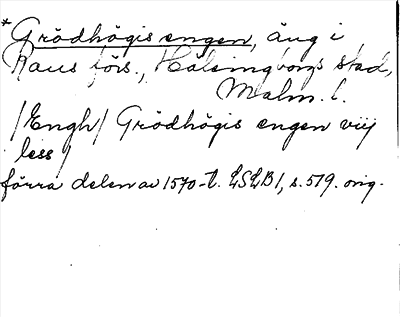 *Grödhögis engen, äng i
Raus förs., Hälsingborgs stad,
Malm. l.
/Engh/ Grödhögis engen viij
less/
förra delen av 1570-t. LSLB 1, s. 519. orig.